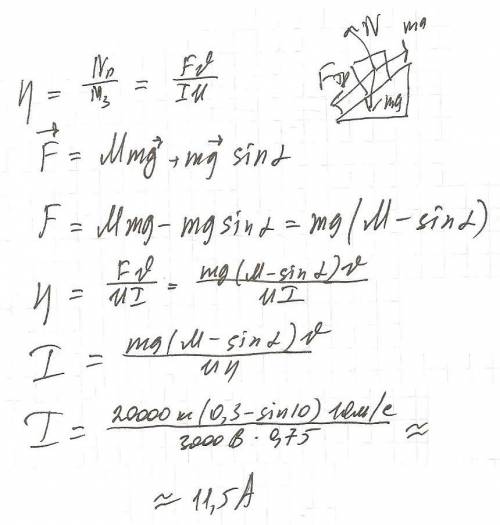 N mg
Fтр
mg
η = Nп/Nз = Fϑ/IU
F⃗ = μmg⃗ + mg⃗ sinα
F = μmg - mg sinα = mg(μ - sinα)
η = Fϑ/UI = mg(μ - sinα)ϑ/UI
I = mg(μ - sinα)ϑ/Uη
I = 20000н(0,3 - sin10) 10м/с / 3000В · 0,75 ≈
≈ 11,5A